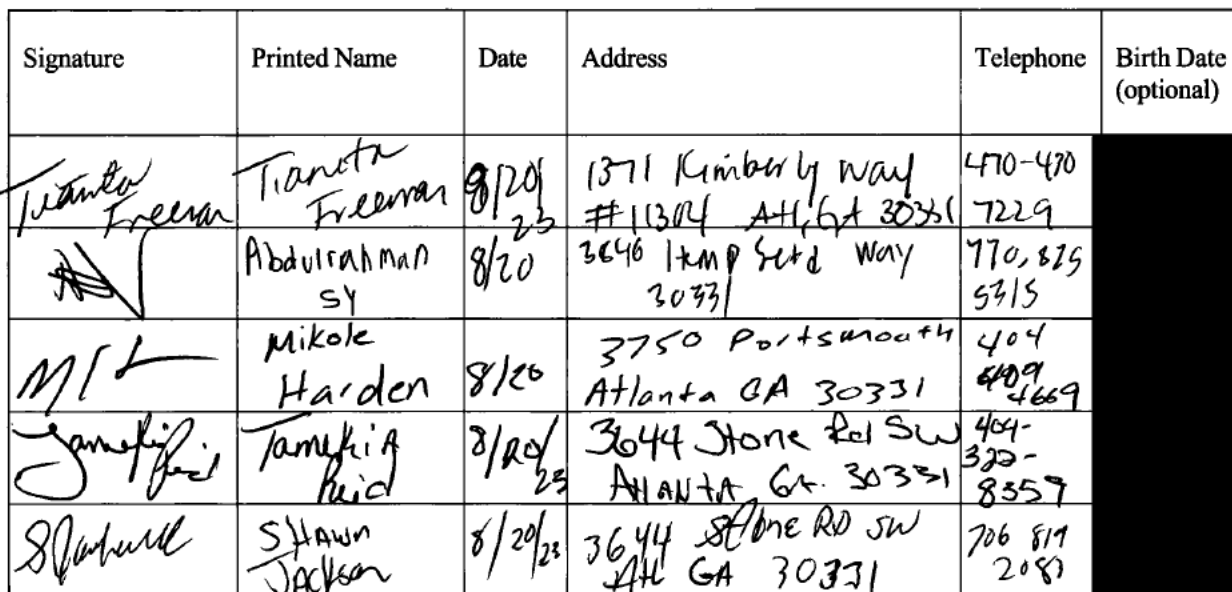 Signature Printed Name Date Address Telephone Birth Date
(optional)
Tianta
Freeman
Tianita
Freeman
8/20/
23
1371 Kimberly way
#11304 Atl, GA 30331
470-430
7229
Abdulrahman
SY
8/20
3646 Hemp Seed Way
30331
770, 825
5315
Mikole
Harden
8/20
3750 Portsmouth
Atlanta GA 30331
404
409
4669
Tamekia
Reid
Tamekia
Reid
8/20/
23
3644 Stone Rd SW
Atlanta, GA. 30331
404-
322-
8359
Shawn
Jackson
8/20/23
3644 Stone RD SW
Atl GA 30331
706 819